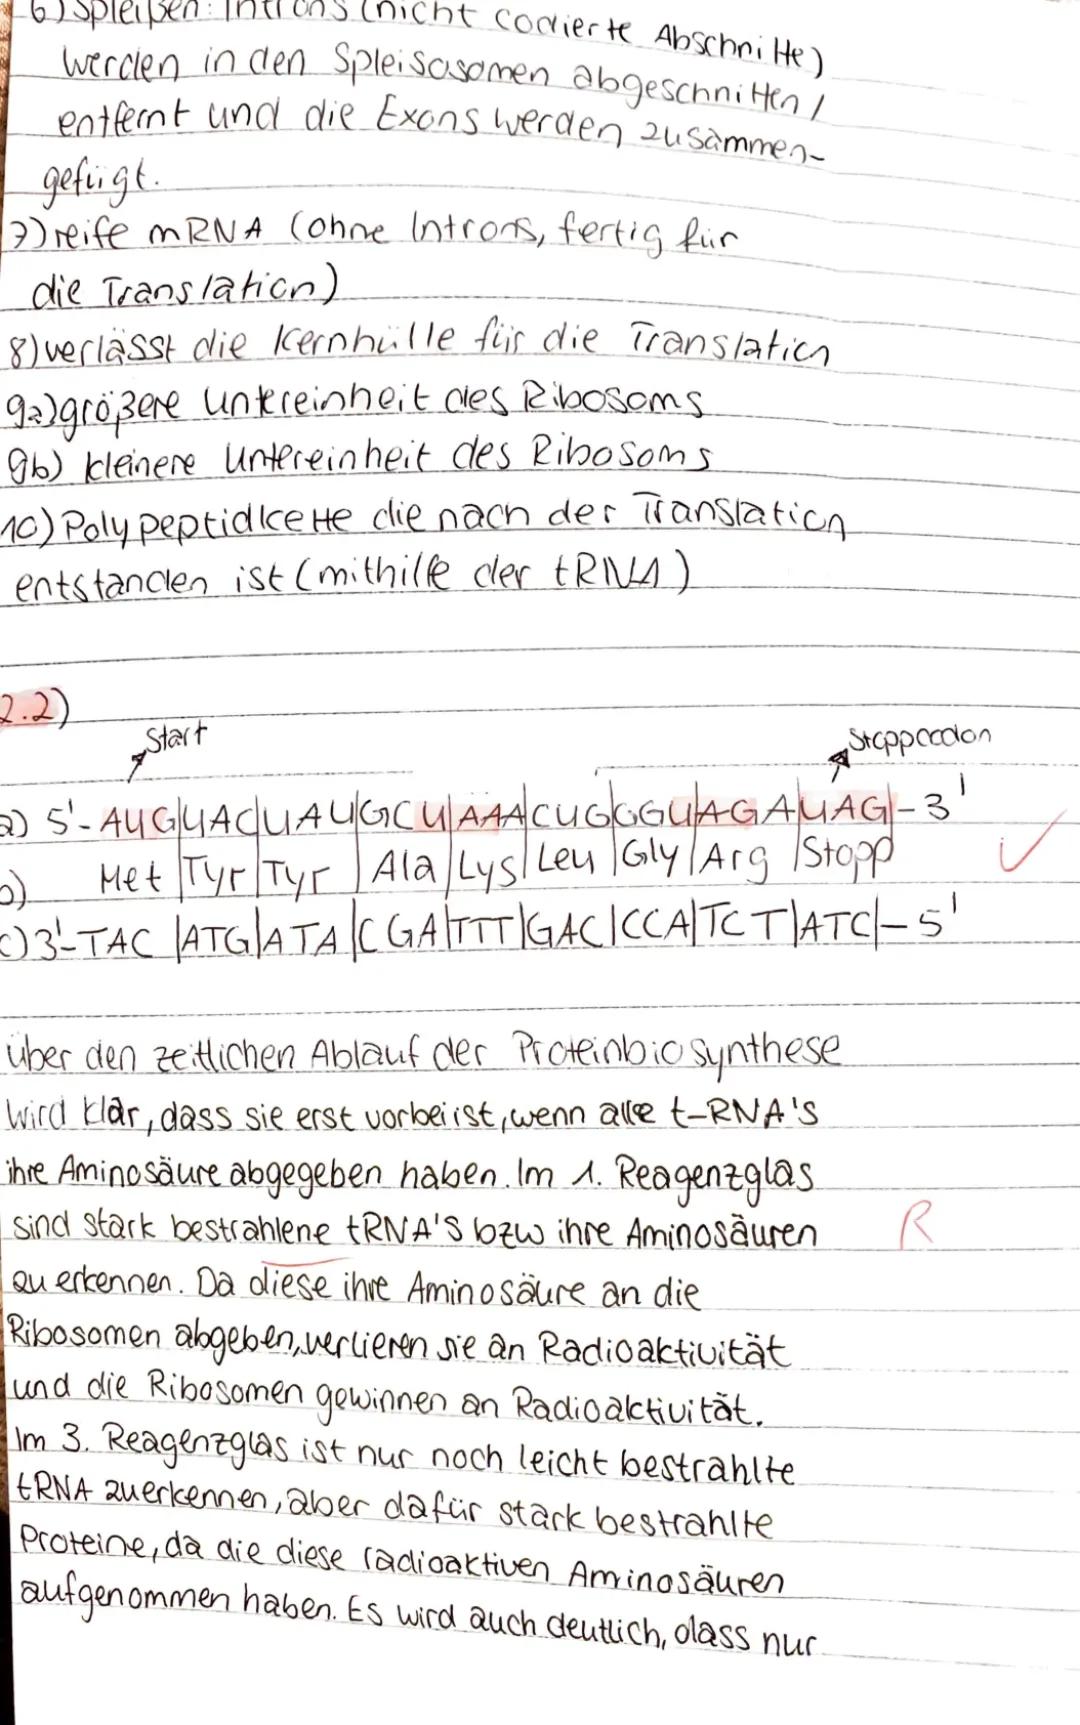 6) Spleißen: Introns (nicht codierte Abschnitte)
werden in den Spleisosomen abgeschnitten /
entfernt und die Exons werden zusammen-
gefügt.
7) reife mRNA (ohne Introns, fertig für
die Translation)
8) verlässt die Kernhülle für die Translation
9a) größere Untereinheit des Ribosoms
9b) kleinere Untereinheit des Ribosoms
10) Polypeptidkette die nach der Translation
entstanden ist (mithilfe der tRNA)
2.2)
Start Stoppcodon
a) 5'- AUG|UAC|UAU|GCU|AAA|CUG|GGU|AGA|UAG|-3'
b) Met |Tyr|Tyr |Ala|Lys|Leu|Gly|Arg|Stopp
c) 3'-TAC |ATG|ATA|CGA|TTT|GAC|CCA|TCT|ATC|-5'
über den zeitlichen Ablauf der Proteinbiosynthese
wird klar, dass sie erst vorbei ist, wenn alle t-RNA's
ihre Aminosäure abgegeben haben. Im 1. Reagenzglas
sind stark bestrahlene tRNA'S bzw ihre Aminosäuren R
zu erkennen. Da diese ihre Aminosäure an die
Ribosomen abgeben, verlieren sie an Radioaktivität
und die Ribosomen gewinnen an Radioaktivität.
Im 3. Reagenzglas ist nur noch leicht bestrahlte
tRNA zuerkennen, aber dafür stark bestrahlte
Proteine, da die diese radioaktiven Aminosäuren
aufgenommen haben. Es wird auch deutlich, dass nur